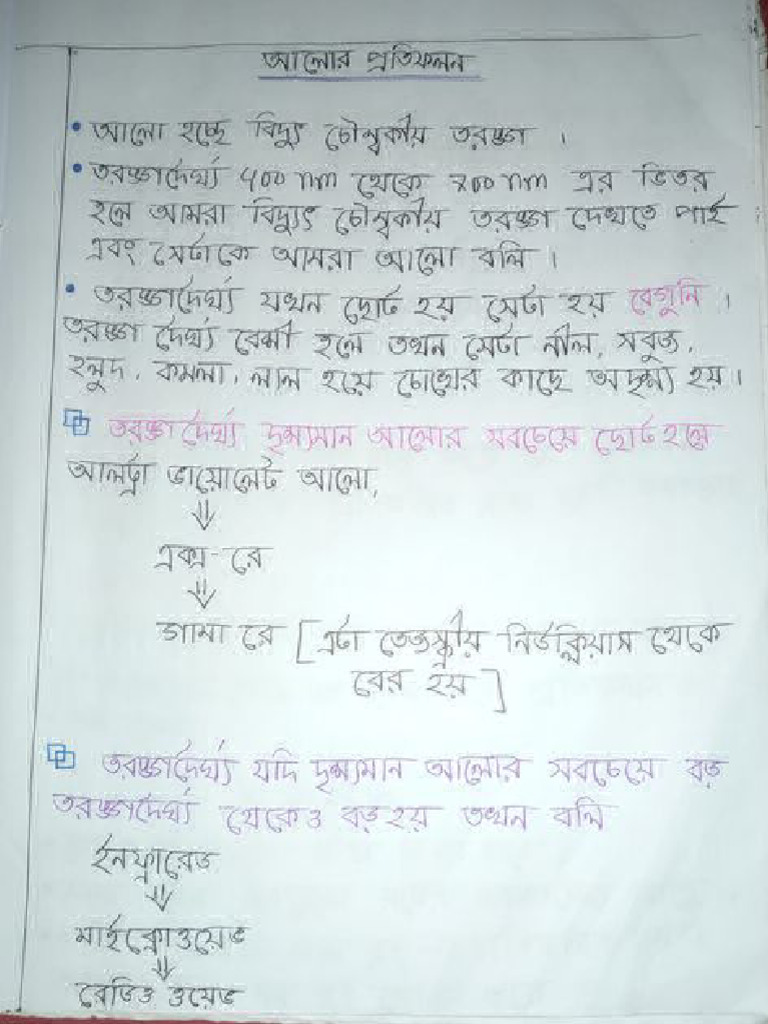 আলোর প্রতিফলন
• আলো হচ্ছে বিদ্যুৎ চৌম্বকীয় তরঙ্গ ।
• তরঙ্গদৈর্ঘ্য 400 nm থেকে 700 nm এর ভিতর
হলে আমরা বিদ্যুৎ চৌম্বকীয় তরঙ্গ দেখতে পাই
এবং সেটাকে আমরা আলো বলি ।
• তরঙ্গদৈর্ঘ্য যখন ছোট হয় সেটা হয় বেগুনি ।
তরঙ্গ দৈর্ঘ্য বেশী হলে তখন সেটা নীল, সবুজ,
হলুদ, কমলা, লাল হয়ে চোখের কাছে অদৃশ্য হয় ।
তরঙ্গদৈর্ঘ্য দৃশ্যমান আলোর সবচেয়ে ছোট হলে
আলট্রা ভায়োলেট আলো,
⇓
এক্স-রে
⇓
গামা রে [এটা তেজস্ক্রীয় নিউক্লিয়াস থেকে
বের হয়]
তরঙ্গদৈর্ঘ্য যদি দৃশ্যমান আলোর সবচেয়ে বড়
তরঙ্গদৈর্ঘ্য থেকেও বড় হয় তখন বলি
ইনফ্রারেড
⇓
মাইক্রোওয়েভ
⇓
রেডিও ওয়েভ